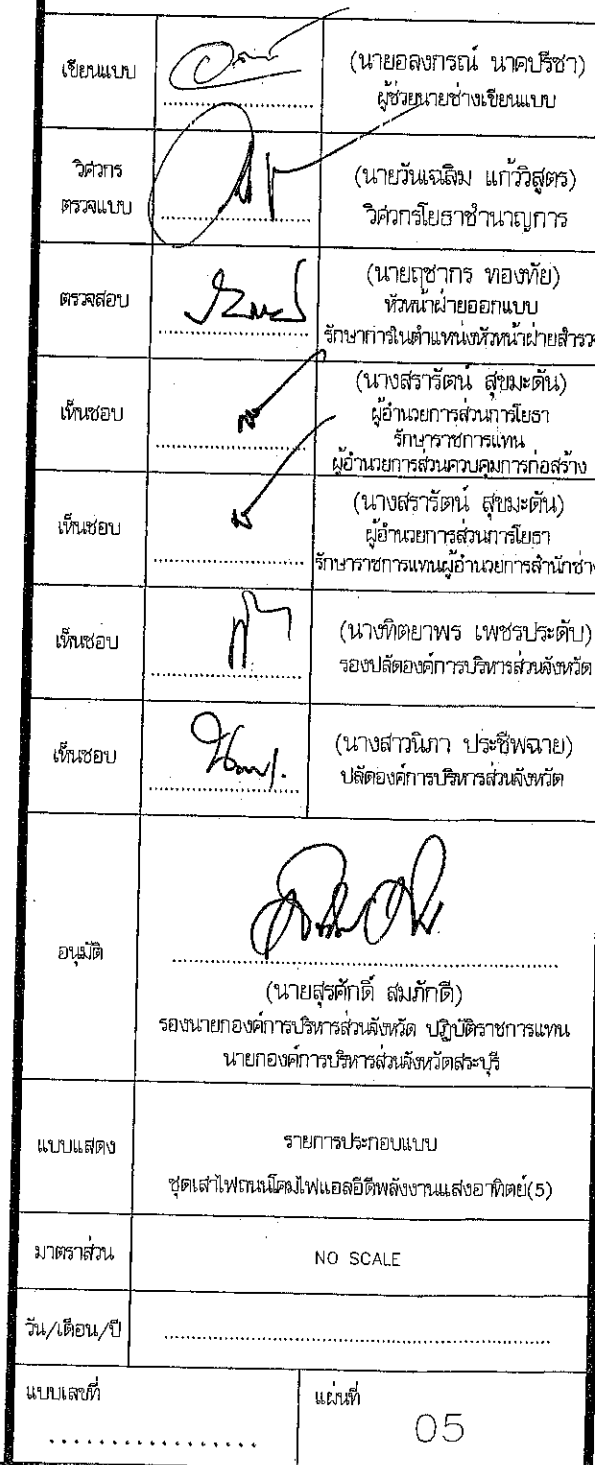 เขียนแบบ
(นายอลงกรณ์ นาคปรีชา)
ผู้ช่วยนายช่างเขียนแบบ
วิศวกร
ตรวจแบบ
(นายวันเฉลิม แก้ววิสูตร)
วิศวกรโยธาชำนาญการ
ตรวจสอบ
(นายฤชากร ทองทัย)
หัวหน้าฝ่ายออกแบบ
รักษาการในตำแหน่งหัวหน้าฝ่ายสำรวจ
เห็นชอบ
(นางสรารัตน์ สุขมะดัน)
ผู้อำนวยการส่วนการโยธา
รักษาราชการแทน
ผู้อำนวยการส่วนควบคุมการก่อสร้าง
เห็นชอบ
(นางสรารัตน์ สุขมะดัน)
ผู้อำนวยการส่วนการโยธา
รักษาราชการแทนผู้อำนวยการสำนักช่าง
เห็นชอบ
(นางทิตยาพร เพชรประดับ)
รองปลัดองค์การบริหารส่วนจังหวัด
เห็นชอบ
(นางสาวนิภา ประชีพฉาย)
ปลัดองค์การบริหารส่วนจังหวัด
อนุมัติ
(นายสุรศักดิ์ สมภักดี)
รองนายกองค์การบริหารส่วนจังหวัด ปฏิบัติราชการแทน
นายกองค์การบริหารส่วนจังหวัดสระบุรี
แบบแสดง
รายการประกอบแบบ
ชุดเสาไฟถนนโคมไฟแอลอีดีพลังงานแสงอาทิตย์(5)
มาตราส่วน
NO SCALE
วัน/เดือน/ปี
แบบเลขที่
แผ่นที่
05